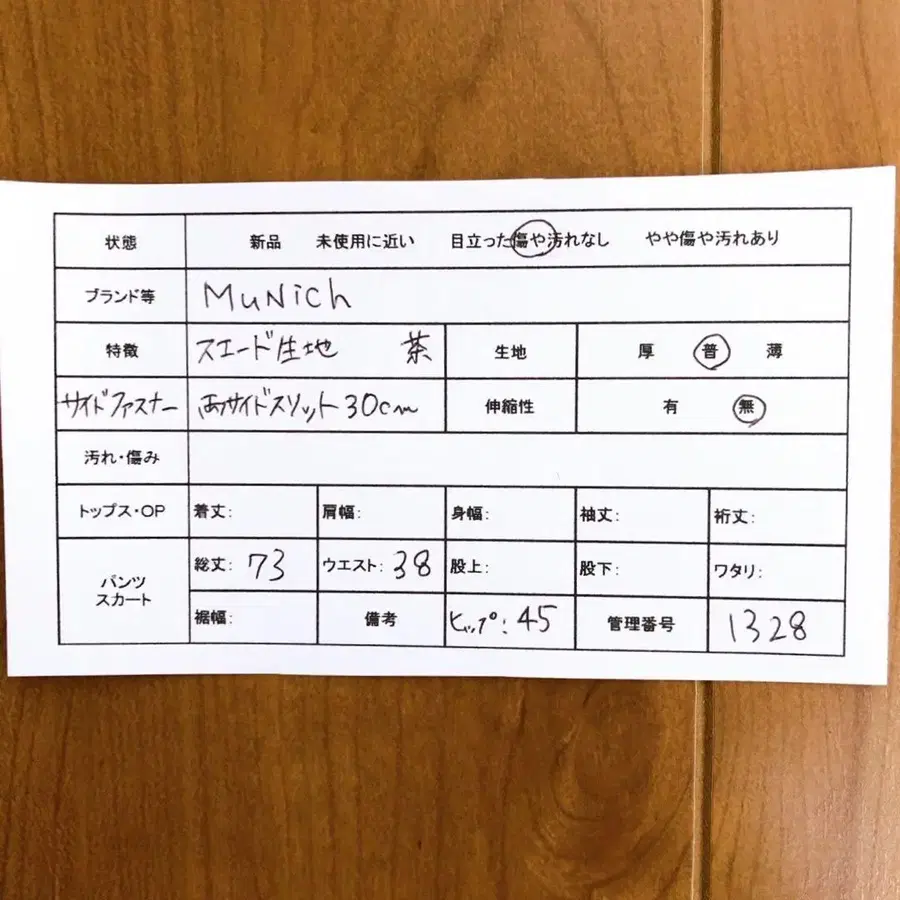 状態 新品 未使用に近い 目立った傷や汚れなし やや傷や汚れあり
ブランド等 MuNich
特徴 スエード生地 茶 生地 厚 普 薄
サイドファスナー 両サイドスリット30cm 伸縮性 有 無
汚れ・傷み
トップス・OP 着丈: 肩幅: 身幅: 袖丈: 裄丈:
パンツ スカート 総丈: 73 ウエスト: 38 股上: 股下: ワタリ:
裾幅: 備考 ヒップ: 45 管理番号 1328